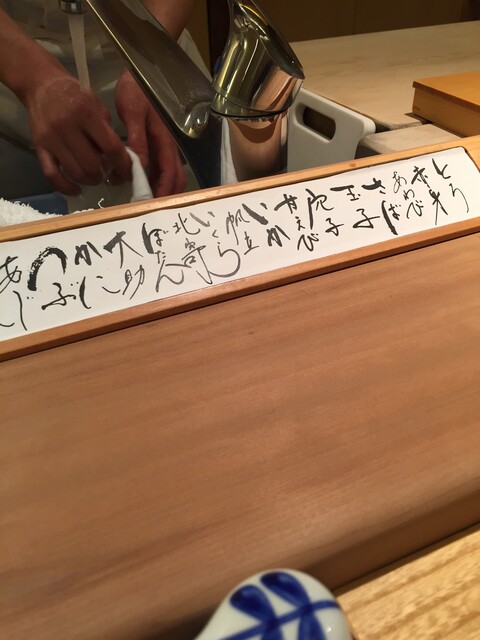 とろ
赤米
あわび
さば
玉子
穴子
甘えび
いか
帆立
いくら
北寄
ぼたん
大助
かに
つぶ
あじ